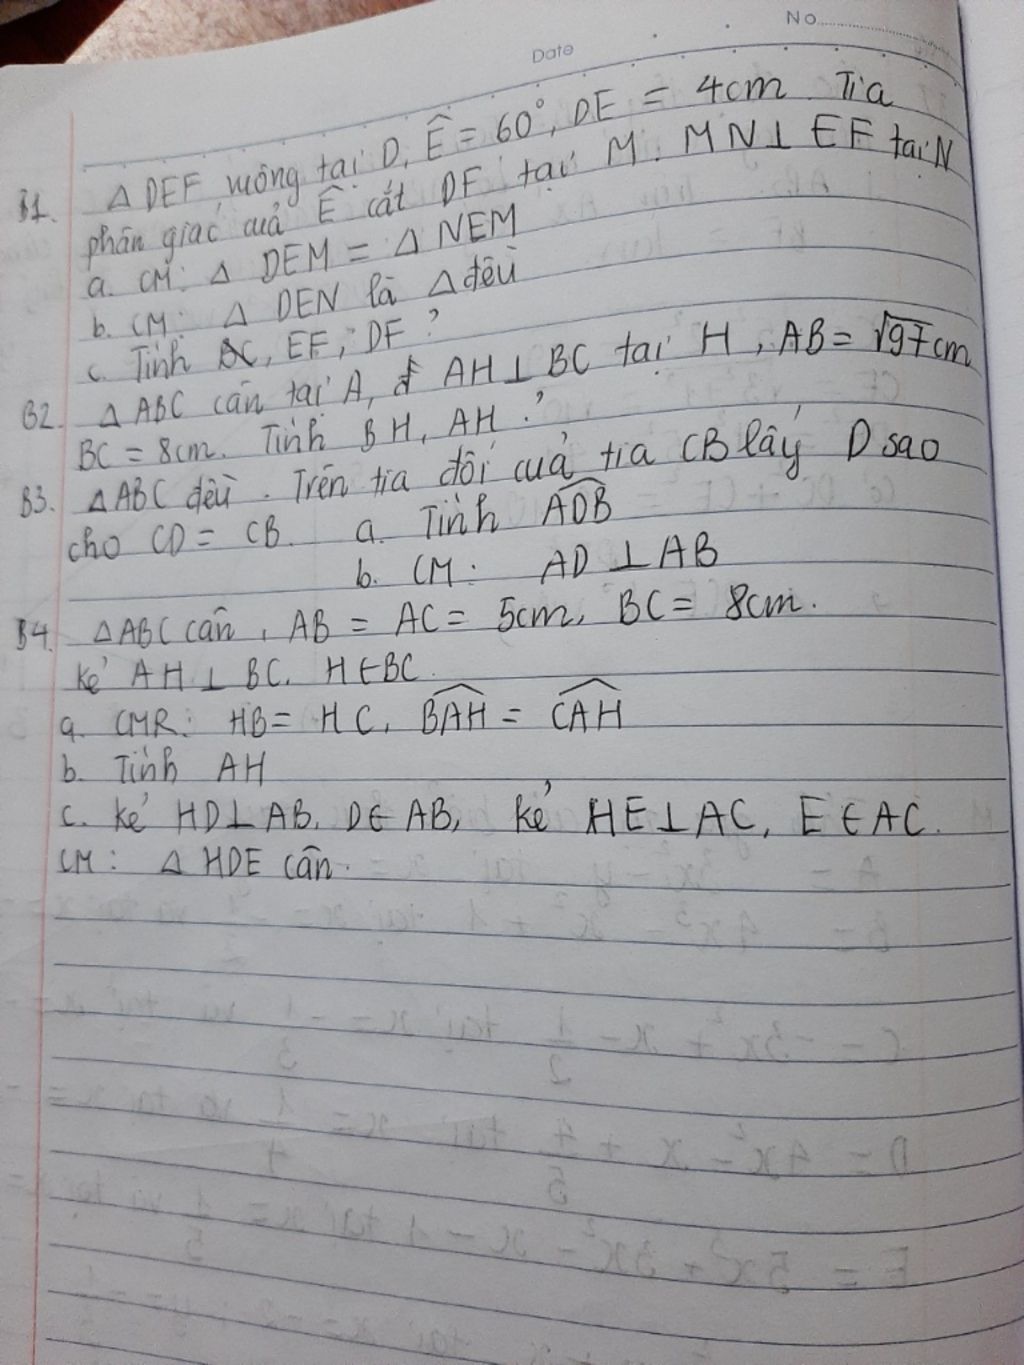 No
Date
B1. Δ DEF vuông tại D, Ê = 60°, DE = 4cm Tia
phân giác cuả Ê cắt DF tại M. MN⊥ EF tại N
a. CM: Δ DEM = Δ NEM
b. CM: Δ DEN là Δ đều
c. Tính EF, DF ?
B2. Δ ABC cân tại A, AH ⊥ BC tại H, AB = √97cm
BC = 8cm. Tính BH, AH ?
B3. ΔABC đều. Trên tia đối cuả tia CB lấy D sao
cho CD = CB. a. Tính \widehat{ADB}
b. CM: AD ⊥ AB
B4. ΔABC cân, AB = AC = 5cm, BC = 8cm.
kẻ AH ⊥ BC. H∈BC
a. CMR: HB = HC, \widehat{BAH} = \widehat{CAH}
b. Tính AH
c. kẻ HD⊥AB. D∈ AB, kẻ HE⊥AC, E∈AC.
CM: Δ HDE cân.